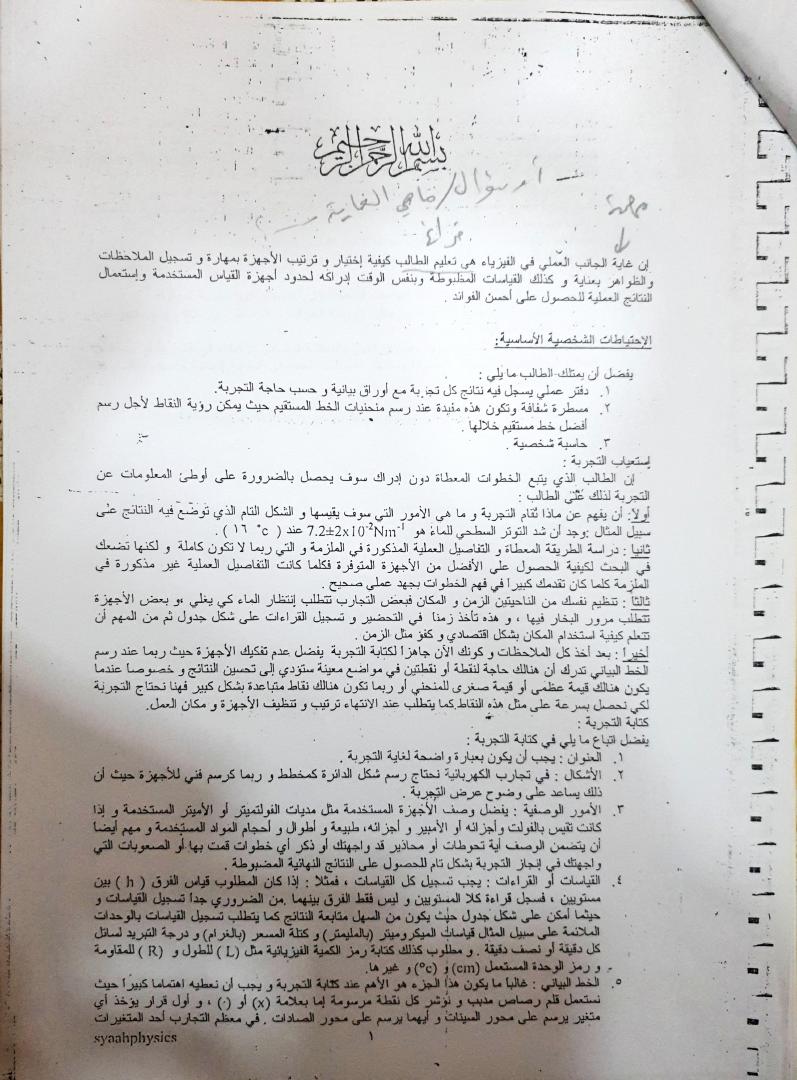 بسم الله الرحمن الرحيم
أو سؤال/ ماهي الغاية
مهمة
فراغ
إن غاية الجانب العملي في الفيزياء هي تعليم الطالب كيفية إختيار و ترتيب الأجهزة بمهارة و تسجيل الملاحظات
والظواهر بعناية و كذلك القياسات المظبوطة وبنفس الوقت إدراكه لحدود أجهزة القياس المستخدمة وإستعمال
النتائج العملية للحصول على أحسن الفوائد .
الإحتياطات الشخصية الأساسية:
يفضل أن يمتلك الطالب ما يلي :
١. دفتر عملي يسجل فيه نتائج كل تجربة مع أوراق بيانية و حسب حاجة التجربة.
٢. مسطرة شفافة وتكون هذه مفيدة عند رسم منحنيات الخط المستقيم حيث يمكن رؤية النقاط لأجل رسم
أفضل خط مستقيم خلالها .
٣. حاسبة شخصية .
إستيعاب التجربة :
إن الطالب الذي يتبع الخطوات المعطاة دون إدراك سوف يحصل بالضرورة على أوطئ المعلومات عن
التجربة لذلك على الطالب :
أولاً: أن يفهم عن ماذا تقام التجربة و ما هي الأمور التي سوف يقيسها و الشكل التام الذي توضع فيه النتائج على
سبيل المثال :وجد أن شد التوتر السطحي للماء هو 7.2±2x10⁻²Nm⁻¹ عند ( ١٦ °c ) .
ثانياً : دراسة الطريقة المعطاة و التفاصيل العملية المذكورة في الملزمة و التي ربما لا تكون كاملة و لكنها تضعك
في البحث لكيفية الحصول على الأفضل من الأجهزة المتوفرة فكلما كانت التفاصيل العملية غير مذكورة في
الملزمة كلما كان تقدمك كبيراً في فهم الخطوات بجهد عملي صحيح .
ثالثاً : تنظيم نفسك من الناحيتين الزمن و المكان فبعض التجارب تتطلب إنتظار الماء كي يغلي ،و بعض الأجهزة
تتطلب مرور البخار فيها ، و هذه تأخذ زمناً في التحضير و تسجيل القراءات على شكل جدول ثم من المهم أن
تتعلم كيفية استخدام المكان بشكل اقتصادي و كفؤ مثل الزمن .
أخيراً : بعد أخذ كل الملاحظات و كونك الأن جاهزاً لكتابة التجربة يفضل عدم تفكيك الأجهزة حيث ربما عند رسم
الخط البياني تدرك أن هنالك حاجة لنقطة أو نقطتين في مواضع معينة ستؤدي إلى تحسين النتائج و خصوصاً عندما
يكون هنالك قيمة عظمى أو قيمة صغرى للمنحني أو ربما تكون هنالك نقاط متباعدة بشكل كبير فهنا نحتاج التجربة
لكي نحصل بسرعة على مثل هذه النقاط.كما يتطلب عند الانتهاء ترتيب و تنظيف الأجهزة و مكان العمل.
كتابة التجربة :
يفضل اتباع ما يلي في كتابة التجربة :
١. العنوان : يجب أن يكون بعبارة واضحة لغاية التجربة .
٢. الأشكال : في تجارب الكهربائية نحتاج رسم شكل الدائرة كمخطط و ربما كرسم فني للأجهزة حيث أن
ذلك يساعد على وضوح عرض التجربة .
٣. الأمور الوصفية : يفضل وصف الأجهزة المستخدمة مثل مديات الفولتميتر أو الأميتر المستخدمة و إذا
كانت تقيس بالفولت وأجزائه أو الأمبير و أجزائه، طبيعة و أطوال و أحجام المواد المستخدمة و مهم أيضاً
أن يتضمن الوصف أية تحوطات أو محاذير قد واجهتك أو ذكر أي خطوات قمت بها أو الصعوبات التي
واجهتك في إنجاز التجربة بشكل تام للحصول على النتائج النهائية المضبوطة .
٤. القياسات أو القراءات : يجب تسجيل كل القياسات ، فمثلاً : إذا كان المطلوب قياس الفرق ( h ) بين
مستويين ، فسجل قراءة كلا المستويين و ليس فقط الفرق بينهما .من الضروري جداً تسجيل القياسات و
حيثما أمكن على شكل جدول حيث يكون من السهل متابعة النتائج كما يتطلب تسجيل القياسات بالوحدات
الملائمة على سبيل المثال قياسات الميكروميتر (بالمليمتر) و كتلة المسعر (بالغرام) و درجة التبريد لسائل
كل دقيقة أو نصف دقيقة . و مطلوب كذلك كتابة رمز الكمية الفيزيائية مثل (L) للطول و (R) للمقاومة
و رمز الوحدة المستعمل (cm) و (c°) و غيرها.
٥. الخط البياني : غالباً ما يكون هذا الجزء هو الأهم عند كتابة التجربة و يجب أن نعطيه اهتماما كبيراً حيث
نستعمل قلم رصاص مدبب و نؤشر كل نقطة مرسومة إما بعلامة (x) أو (٠) ، و أول قرار يؤخذ أي
متغير يرسم على محور السينات و أيهما يرسم على محور الصادات . في معظم التجارب أحد المتغيرات
syaahphysics ١